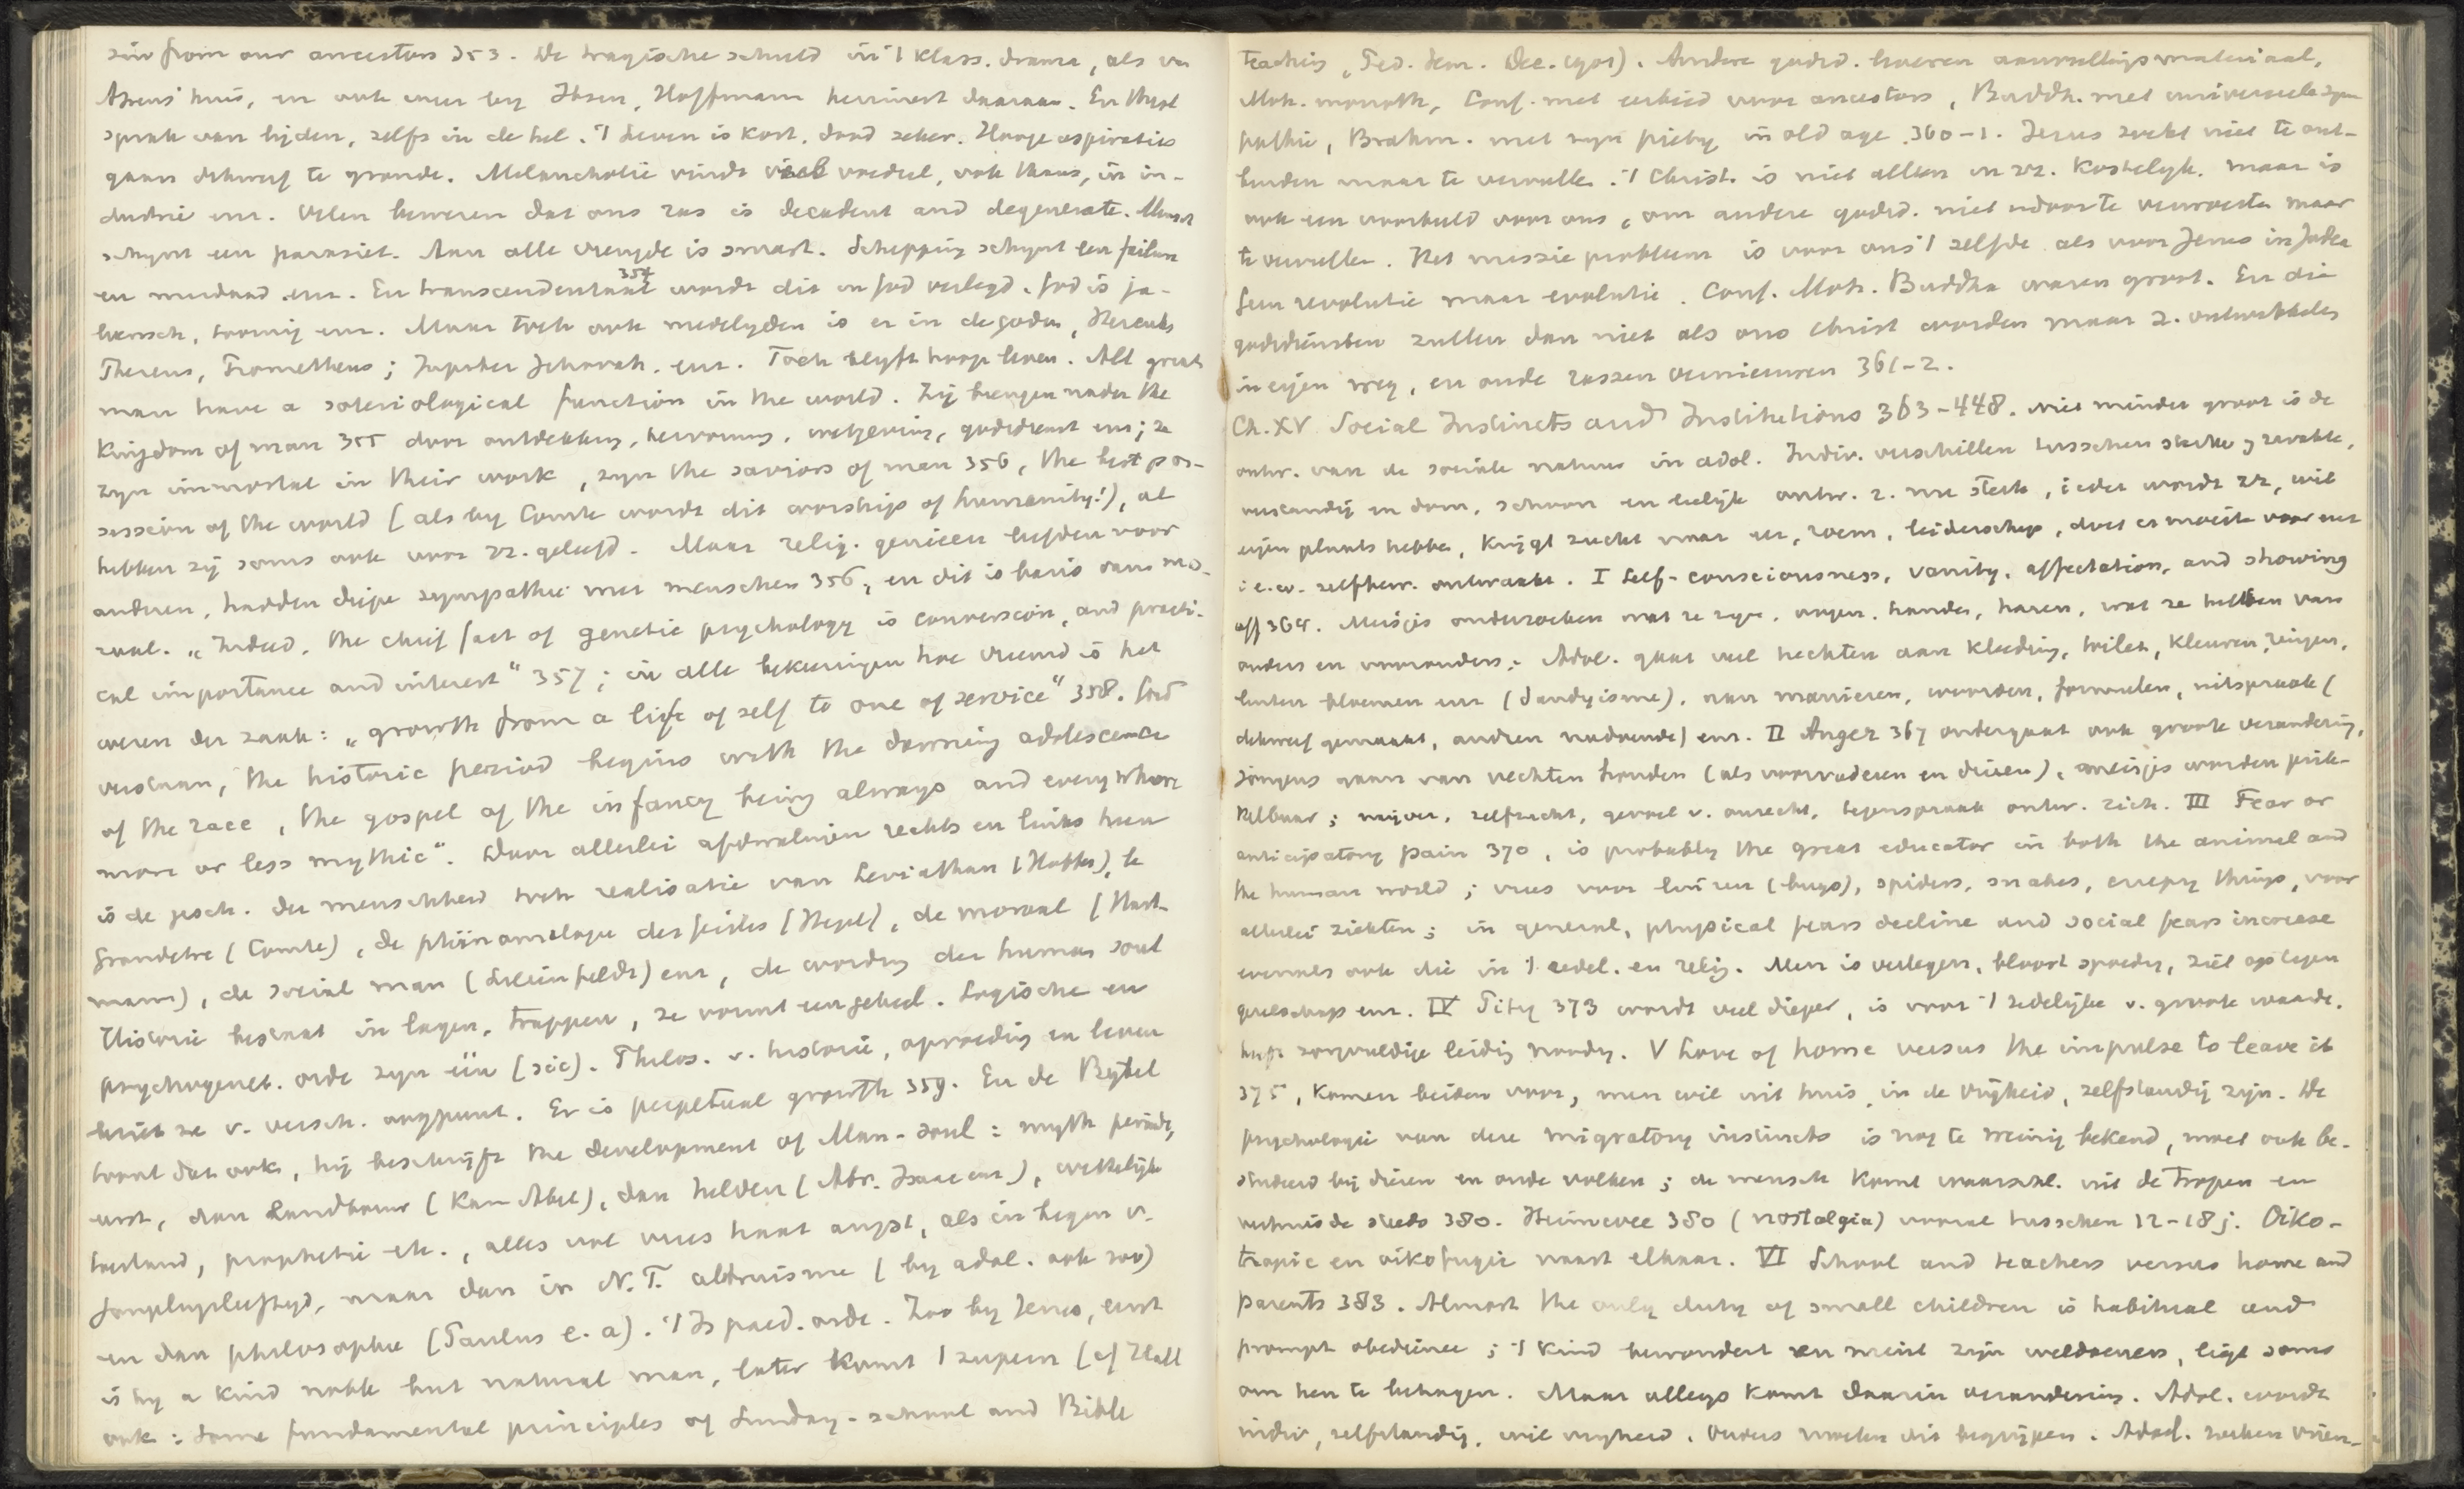 sin from our ancestors 353. De tragische schuld in 't klass. drama, als van
Atreus' huis, en ook weer by Ibsen, Hoffmann herinnert daaraan. En Christ
sprak van lijden, zelfs in de hel. 't Leven is kort, dood zeker. Hooge aspiraties
gaan dikwerf te gronde. Melancholie vindt veel voedsel, ook thans, in in-
dustrie enz. Velen beweren dat ons ras is decadent and degenerate. Mensch
schynt een parasiet. Aan alle vreugde is smart. Schepping schynt een failure
en misdaad enz. En transcendentaal 354 wordt dit in God verlegd. God is ja-
loersch, toornig enz. Maar toch ook medelyden is er in de goden, Hercules
Theseus, Prometheus; Jupiter Jehovah. enz. Toch blyft hoop leven. All great
man have a soteriological function in the world. Zij brengen nader the
Kingdom of man 355 door ontdekking, hervorming, wetgeving, godsdienst enz; ze
zyn immortal in their work, zyn the saviors of man 356, the best pos-
session of the world (als by Comte wordt dit worship of humanity!), al
hebben zij soms ook voor zz. geleefd. Maar relig. genieen leefden voor
anderen, hadden diepe sympathie met menschen 356, en dit is basis van mo-
raal. „Indeed, the chief fact of genetic psychology is conversion, and practi-
cal importance and interest" 357; in alle bekeeringen hoe vreemd is het
wezen der zaak: „growth from a life of self to one of service" 358. Goed
verstaan, „the historic period begins with the dawning adolescence
of the race, the gospel of the infancy being always and everywhere
more or less mythic". Door allerlei afdwalingen rechts en links heen
is de gesch. der menschheid toch realisatie van Leviathan (Hobbes), le
Grandêtre (Comte), de phänomologie des Geistes (Hegel), de moraal (Hart-
mann), de social man (Lilienfeldt) enz, de wording der human soul
Historie bestaat in lagen, trappen, ze vormt een geheel. Logische en
psychogenet. orde zyn één (sic). Philos. v. historie, opvoeding en leven
beziet ze v. versch. oogpunt. Er is perpetual growth 359. En de Bybel
toont dat ook, hij beschrijft the development of Man-soul: myth periode,
eerst, dan Landbouw (Kain Abel), dan helden (Abr. Isaac enz), wettelijk
toestand, prophetie etc., alles vol vrees haat angst, als in begin v.
jonglyelieftyd, maar dan in N.T. altruisme (by adol. ook zoo)
en dan philosophie (Paulus e.a). 't Is paed. orde. Zoo by Jezus, eerst
is hy a kind noble but natural man, later komt 't zupern (cf Hall
ook: some fundamental principles of Sunday-school and Bible
teaching, Ped. Sem. Dec. 1901). Andere godsd. hoeven aanvullingsmateriaal,
Moh. monoth, Conf. met eerbied voor ancestors, Buddh. met universeele sym
pathie, Brahm. met zyn piety in old age. 360-1. Jezus zoekt niet te ont-
binden maar te vervullen. 't Christ. is niet alleen in zz. kostelyk. maar is
ook een voorbeeld voor ons, om andere godsd. niet uit te verwoesten maar
te vervullen. Het missie probleem is voor ons 't zelfde als voor Jezus in Judea
Geen revolutie maar evolutie. Conf. Moh. Buddha waren groot. En die
godsdiensten zullen dan niet als ons Christ worden maar z. ontwikkelen
in eigen weg, en oude rassen vernieuwen 361-2.
Ch. XV Social Instincts and Institutions 363-448. Niet minder groot is de
ontw. van de sociale natuur in adol. Indiv. verschillen tusschen sterke & zwakke,
verstandig en dom, schoon en leelijk ontw. z. nu sterk, ieder wordt zz, wil
eigen plaats hebben, krijgt zucht naar eer, roem, leiderschap, doet er moeite voor enz
i.e.w. zelfbew. ontwaakt. I Self-consciousness, vanity, affectation, and showing
off 364. Meisjes onderzoeken wat ze zyn, oogen, handen, haren, wat ze hebben van
ouders en voorouders. Adol. gaat veel hechten aan kleeding, toilet, kleuren, ringen,
linten bloemen enz (dandyisme), aan manieren, woorden, formulen, uitspraak (
dikwerf gemaakt, andren nadoende) enz. II Anger 367 ondergaat ook groote verandering,
jongens gaan van vechten houden (als voorvaderen en dieren), meisjes worden prik-
kelbaar; nijver, zelfzucht, gevoel v. onrecht, tegenspraak ontw. zich. III Fear or
anticipatory pain 370, is probably the great educator in both the animal and
the human world; vrees voor luizen (bugs), spiders, snakes, creepy things, voor
allerlei ziekten; in general, physical fears decline and social fears increase
evenals ook die in 't zedel. en relig. Men is verlegen, bloost spoedig, ziet op tegen
gezelschap enz. IV Pity 373 wordt veel dieper, is voor 't zedelijke v. groote waarde.
heeft zorgvuldige leiding noodig. V Love of home versus the impulse to leave it
375, komen beiden voor, men wil uit huis, in de vrijheid, zelfstandig zijn. De
psychologie van deze migratory instincts is nog te weinig bekend, moet ook be-
studeerd bij dieren en oude volken; de mensch komt waarsch. uit de tropen en
verhuisde steeds 380. Heimwee 380 (nostalgia) vooral tusschen 12-18 j. Oiko-
tropie en oikofugie naast elkaar. VI School and teachers versus home and
parents 383. Almost the only duty of small children is habitual and
prompt obedience; 't kind bewondert en meist zijn weldoeners, liegt soms
om hen te behagen. Maar allengs komt daarin verandering. Adol. wordt
indiv, zelfstandig, wil vryheid. Ouders moeten dit begrijpen. Adol. zoeken vrien-